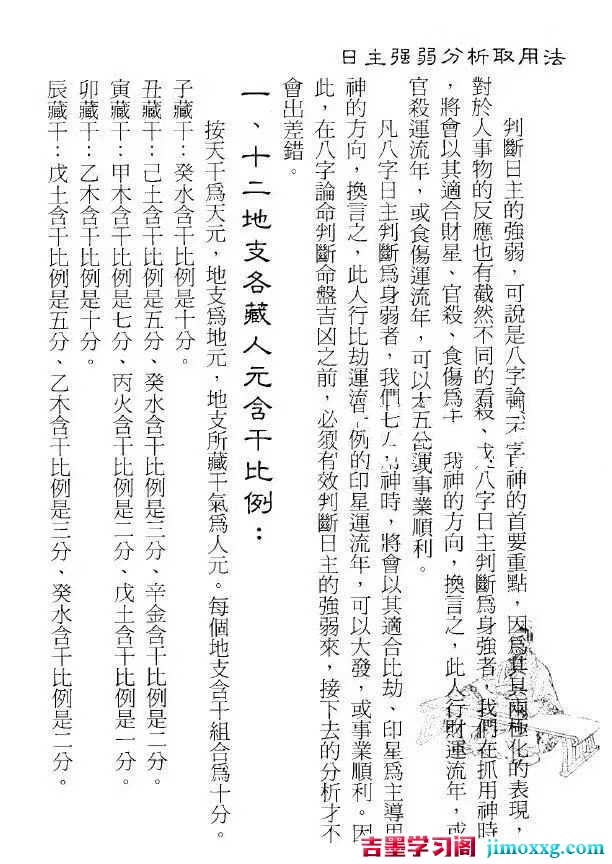 日主强弱分析取用法
判斷日主的強弱，可說是八字論神的首要重點，因爲其具兩極化的表現，
對於人事物的反應也有截然不同的看殺、八字日主判斷爲身強者，我們在抓用神時
，將會以其適合財星、官殺、食傷爲神的方向，換言之，此人行財運流年，或
官殺運流年，或食傷運流年，可以事業順利。
凡八字日主判斷爲身弱者，我們神時，將會以其適合比劫、印星爲主導用
神的方向，換言之，此人行比劫運流例的印星運流年，可以大發，或事業順利。因
此，在八字論命判斷命盤吉凶之前，必須有效判斷日主的強弱來，接下去的分析才不
會出差錯。
一、十二地支各藏人元含干比例：
按天干爲天元，地支爲地元，地支所藏干氣爲人元。每個地支含干組合爲十分。
子藏干：癸水含干比例是十分。
丑藏干：己土含干比例是五分、癸水含干比例是三分、辛金含干比例是二分。
寅藏干：甲木含干比例是七分、丙火含干比例是二分、戊土含干比例是一分。
卯藏干：乙木含干比例是十分。
辰藏干：戊土含干比例是五分、乙木含干比例是三分、癸水含干比例是二分。
吉墨学习阁
jimoxxg.com